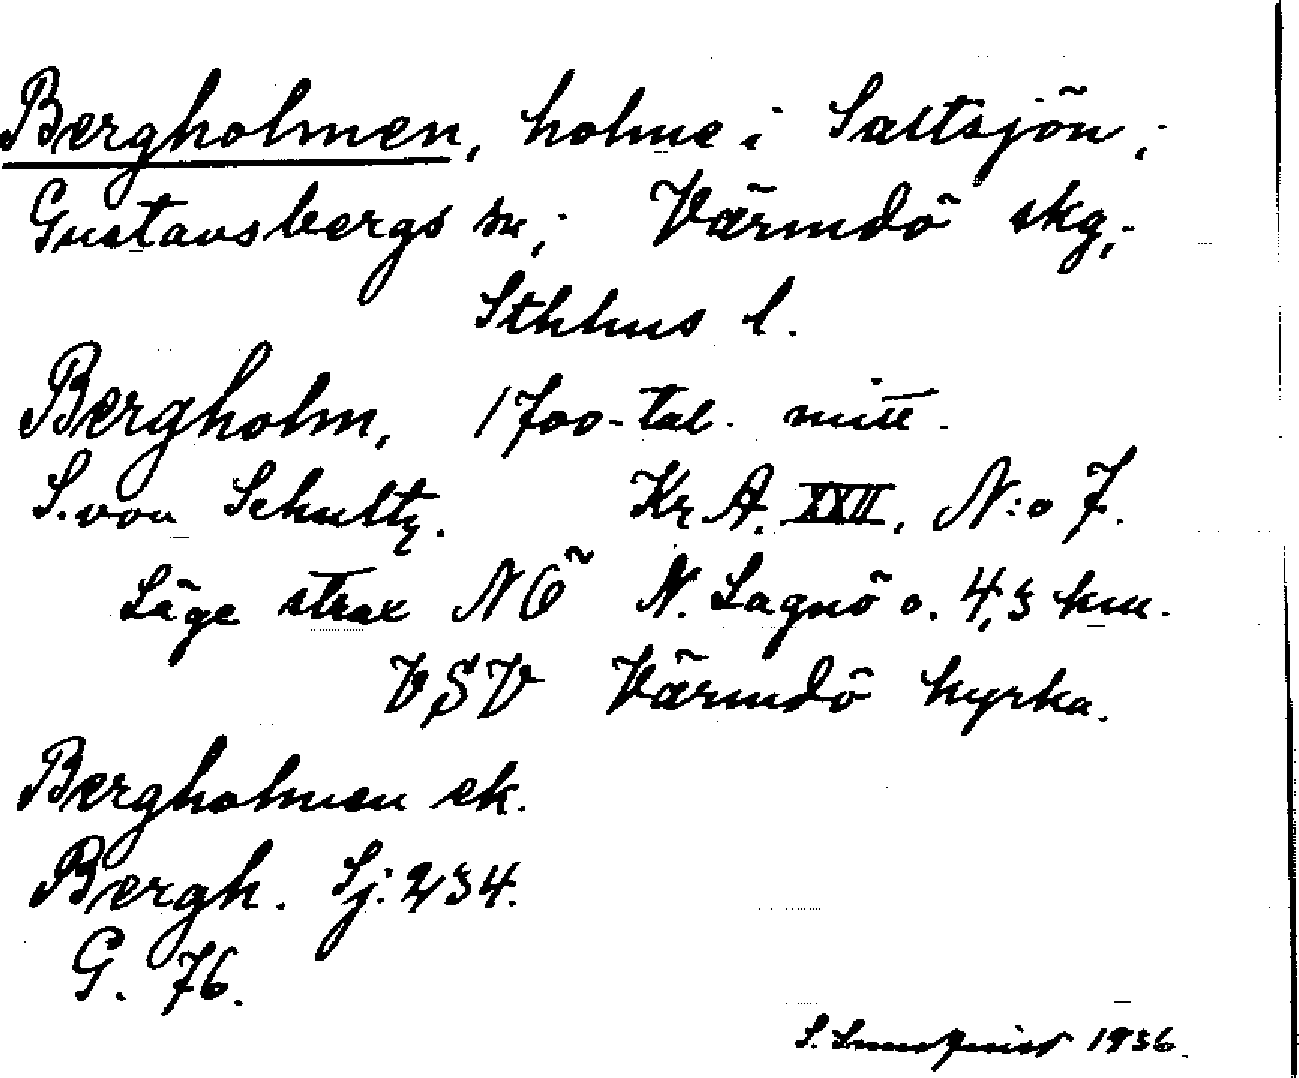 Bergholmen, holme i Saltsjön;
Gustavsbergs sn; Värmdö skg;
Sthlms l.
Bergholm, 1700-tal. mitt.
S. von Schultz. KrA. XXII, N:o 7.
Läge strax NÖ N. Lagnö o. 4,3 km.
VSV Värmdö kyrka.
Bergholmen ek.
Bergh. Sj. 234.
G. 76.
S. Lundqvist 1936.